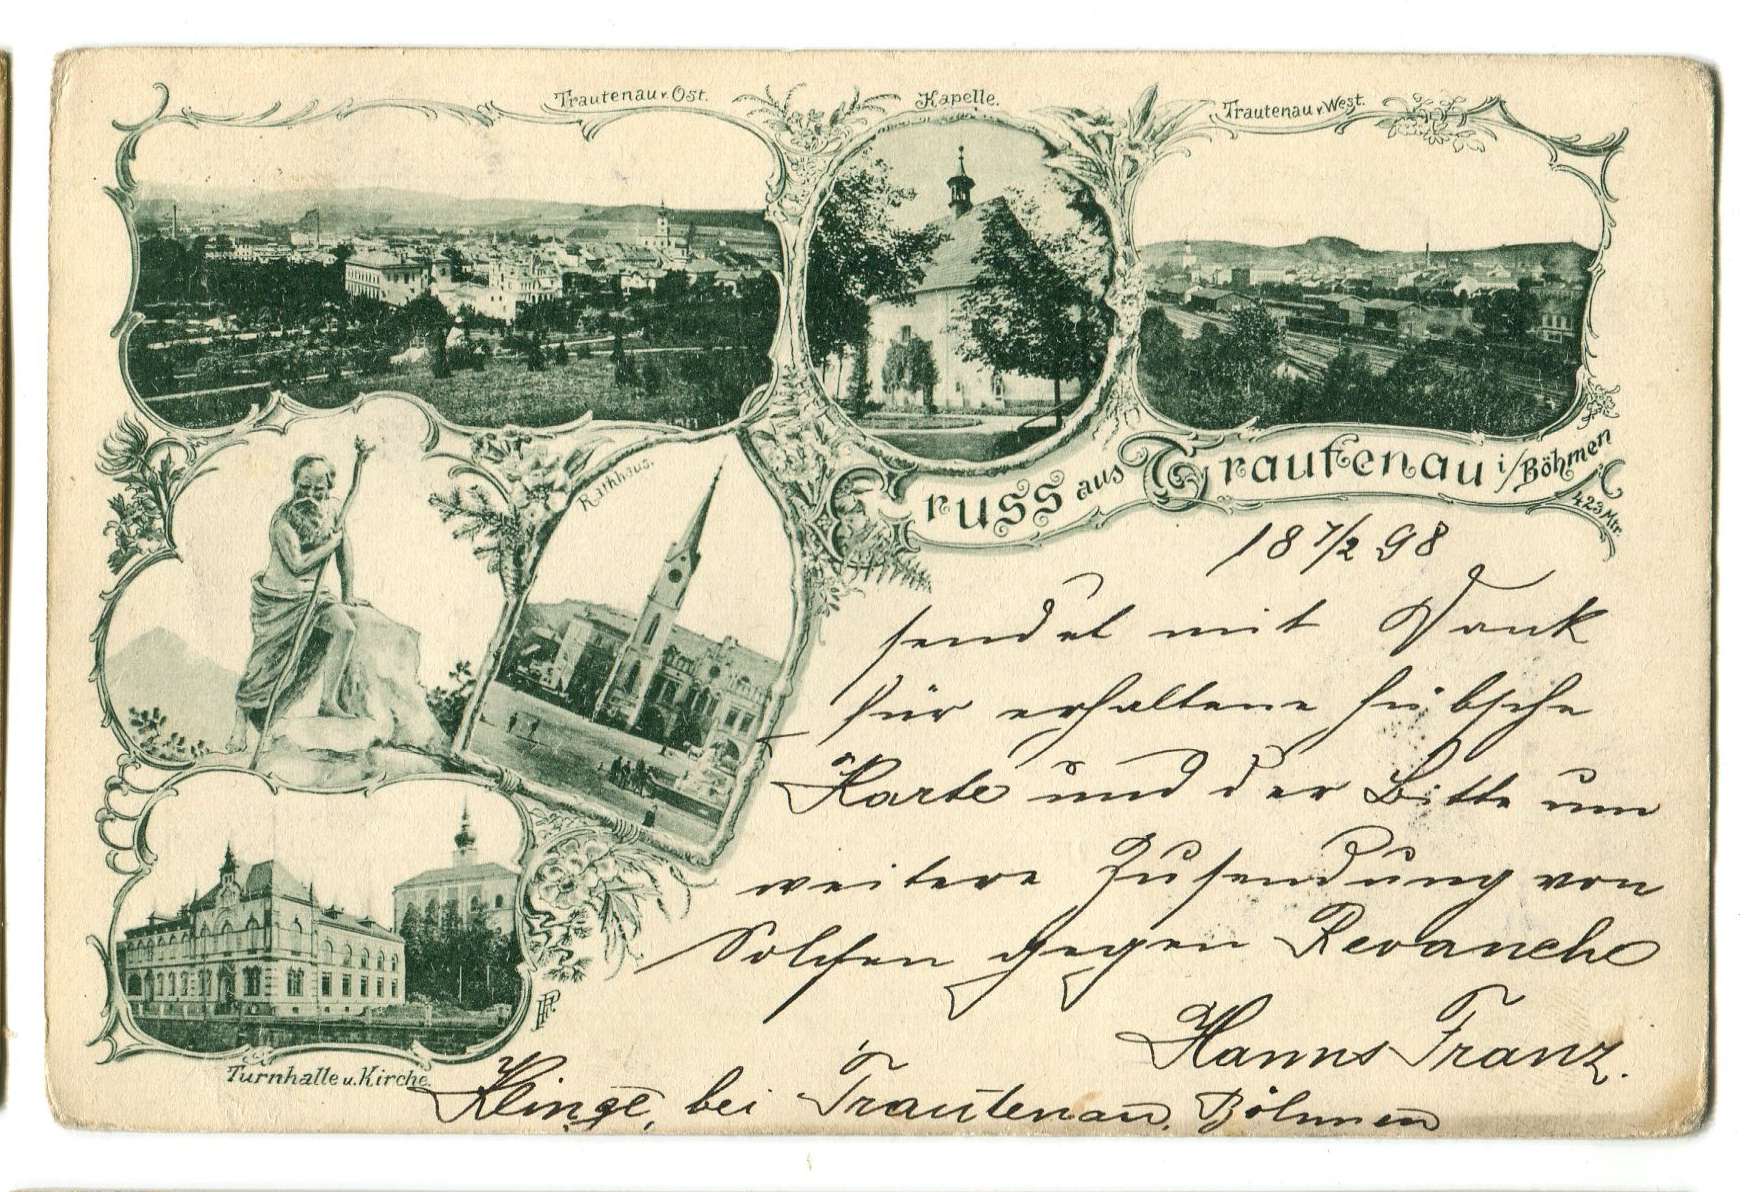 Trautenau v. Ost.
Kapelle.
Trautenau v. West.
Rathhaus.
Gruss aus Trautenau i/Böhmen
423 Mtr.
18 7/2 98
sendet mit Dank
für erhaltene hübsche
Karte und der Bitte um
weitere Zusendung von
Solchen gegen Revanche
Hanns Franz.
Turnhalle u. Kirche.
bei Trautenau, Böhmen